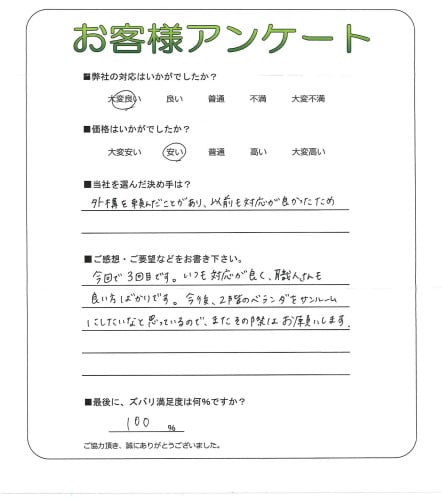 お客様アンケート
■弊社の対応はいかがでしたか？
大変良い　良い　普通　不満　大変不満
■価格はいかがでしたか？
大変安い　安い　普通　高い　大変高い
■当社を選んだ決め手は？
外構を頼んだことがあり、以前も対応が良かったため
■ご感想・ご要望などをお書き下さい。
今回で3回目です。いつも対応が良く、職人さんも
良い方ばかりです。今後、2階のベランダをサンルーム
にしたいなと思っているので、またその際はお願いします。
■最後に、ズバリ満足度は何％ですか？
100 ％
ご協力頂き、誠にありがとうございました。